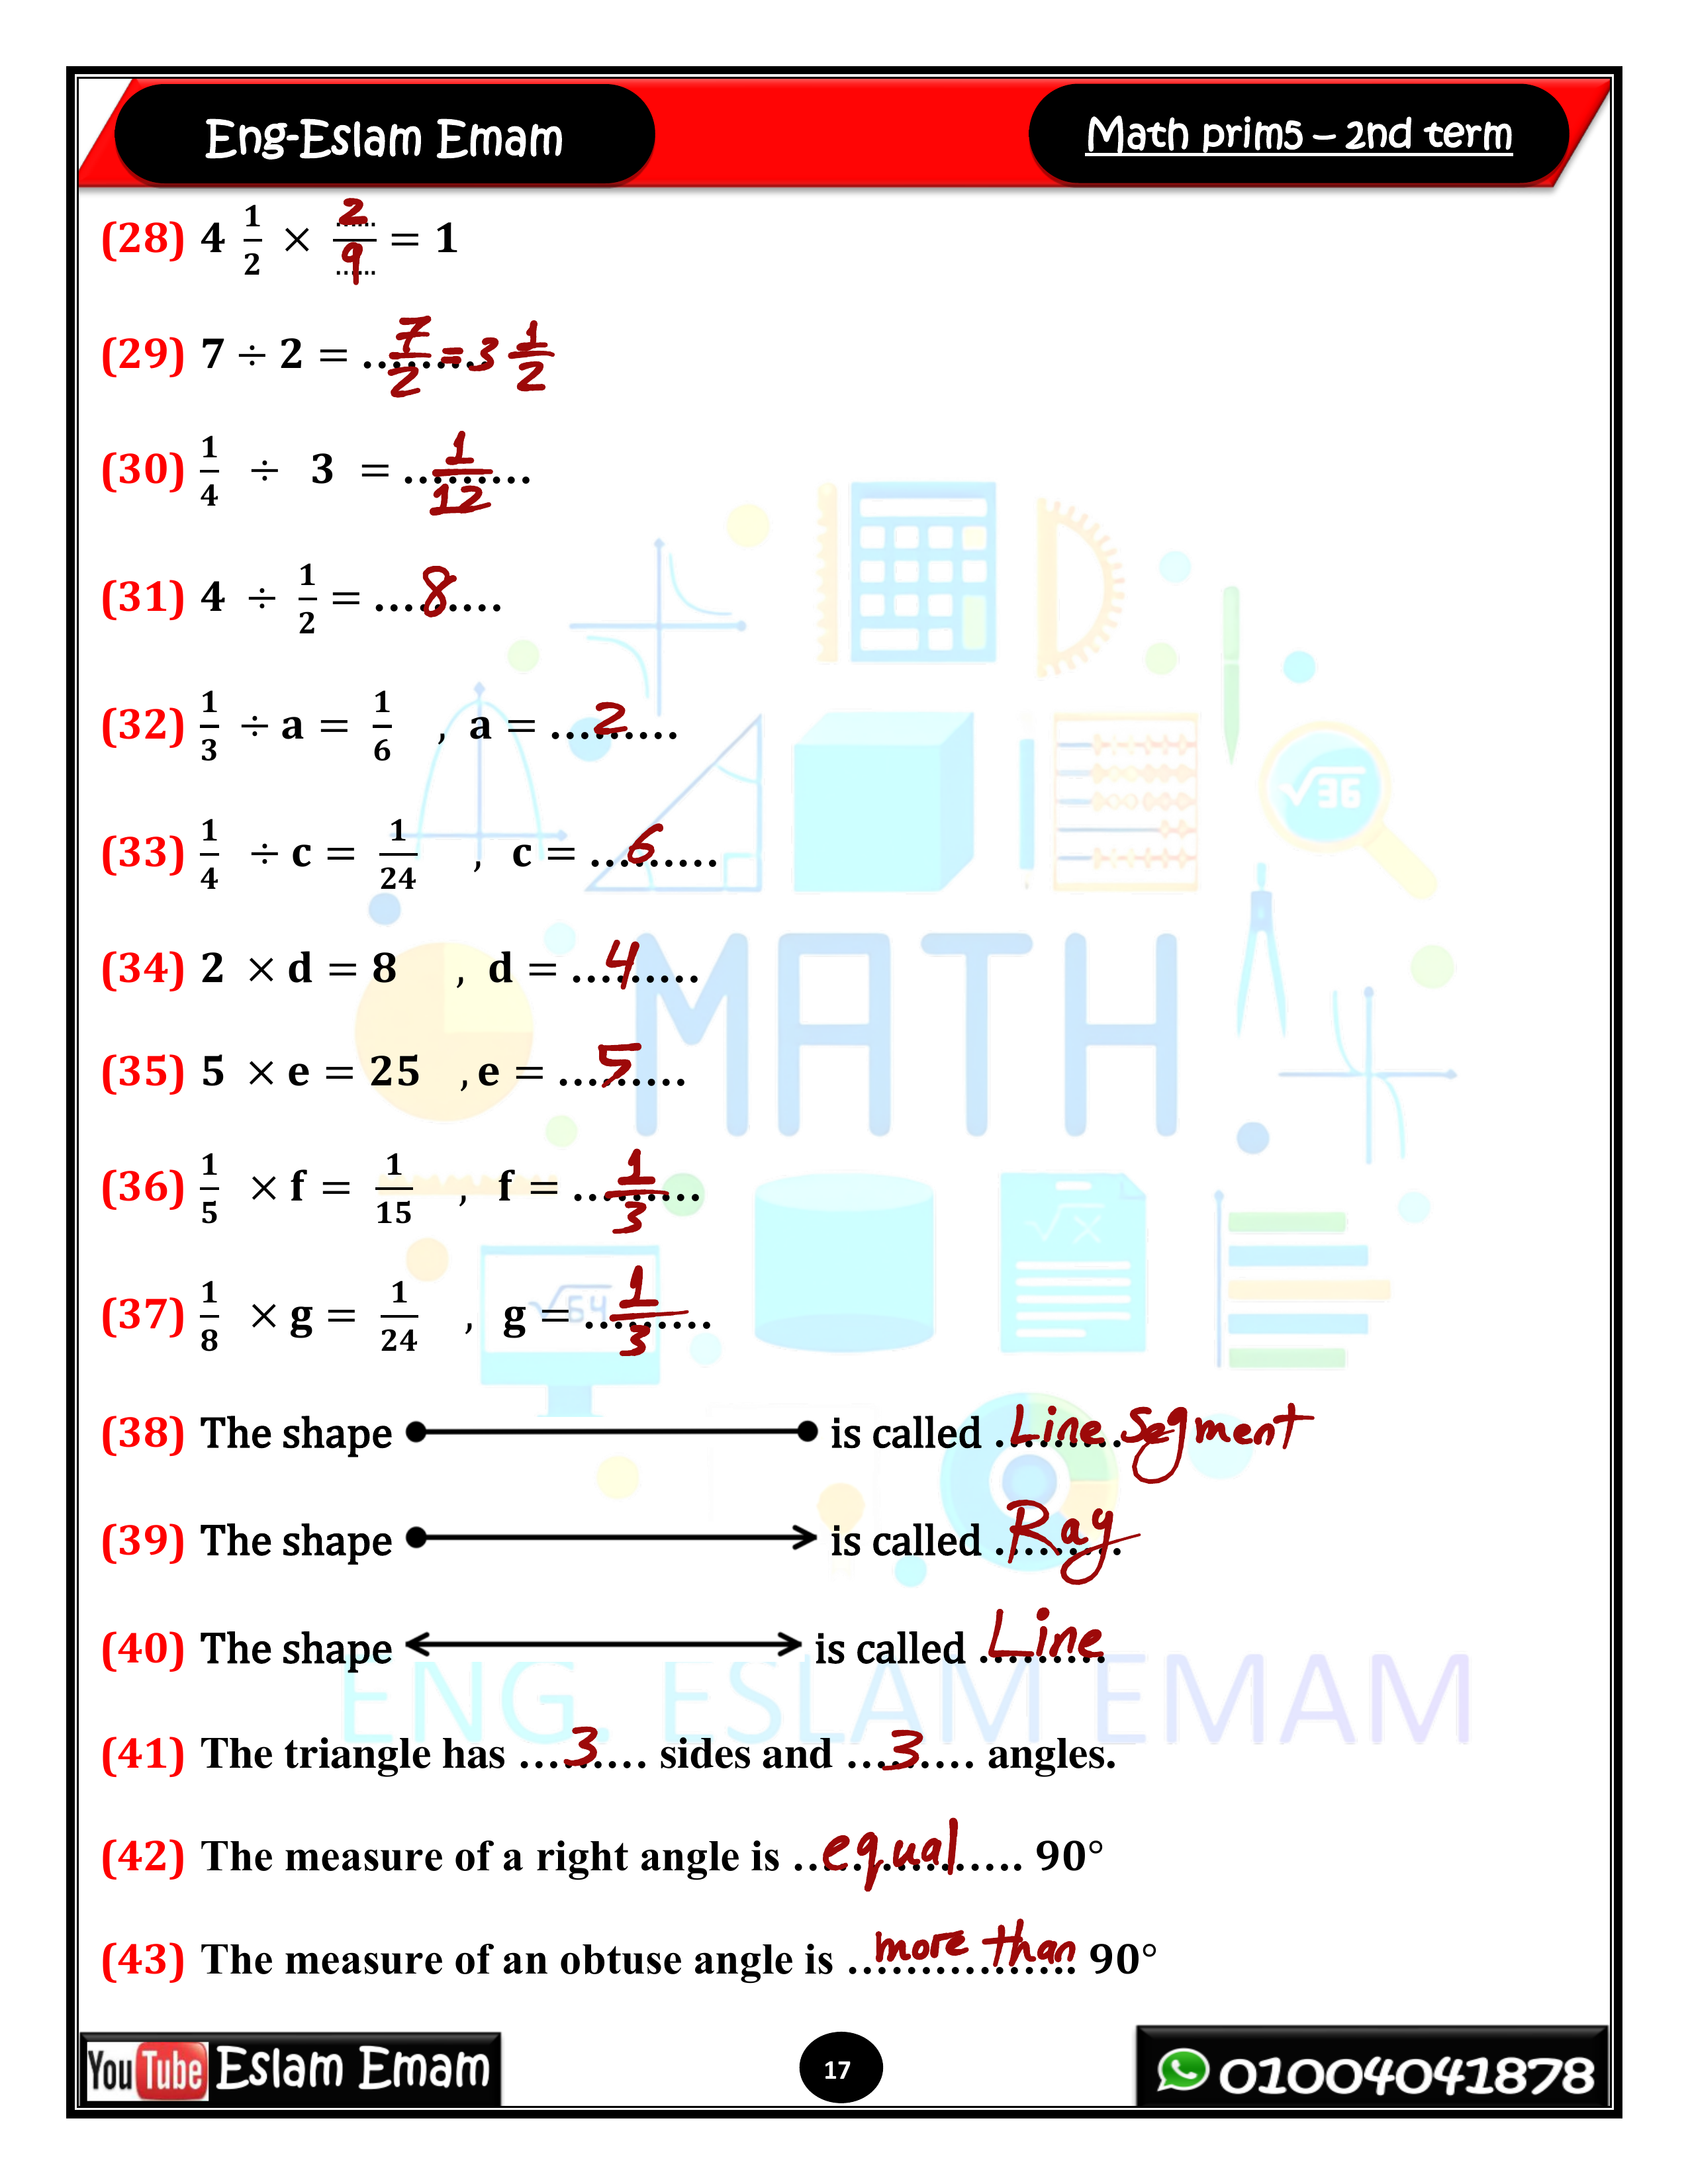 Eng-Eslam Emam
Math prim5 – 2nd term
(28) 4 1/2 × 2/9 = 1
(29) 7 ÷ 2 = ......... 7/2 = 3 1/2
(30) 1/4 ÷ 3 = ......... 1/12
(31) 4 ÷ 1/2 = ......... 8
(32) 1/3 ÷ a = 1/6 , a = ......... 2
(33) 1/4 ÷ c = 1/24 , c = ......... 6
(34) 2 × d = 8 , d = ......... 4
(35) 5 × e = 25 , e = ......... 5
(36) 1/5 × f = 1/15 , f = ......... 1/3
(37) 1/8 × g = 1/24 , g = ......... 1/3
(38) The shape is called ......... Line segment
(39) The shape is called ......... Ray
(40) The shape is called ......... Line
(41) The triangle has ...3... sides and ...3... angles.
(42) The measure of a right angle is ...equal... 90°
(43) The measure of an obtuse angle is ...more than... 90°
√36
MATH
√x
√64
ENG. ESLAM EMAM
YouTube Eslam Emam
17
01004041878